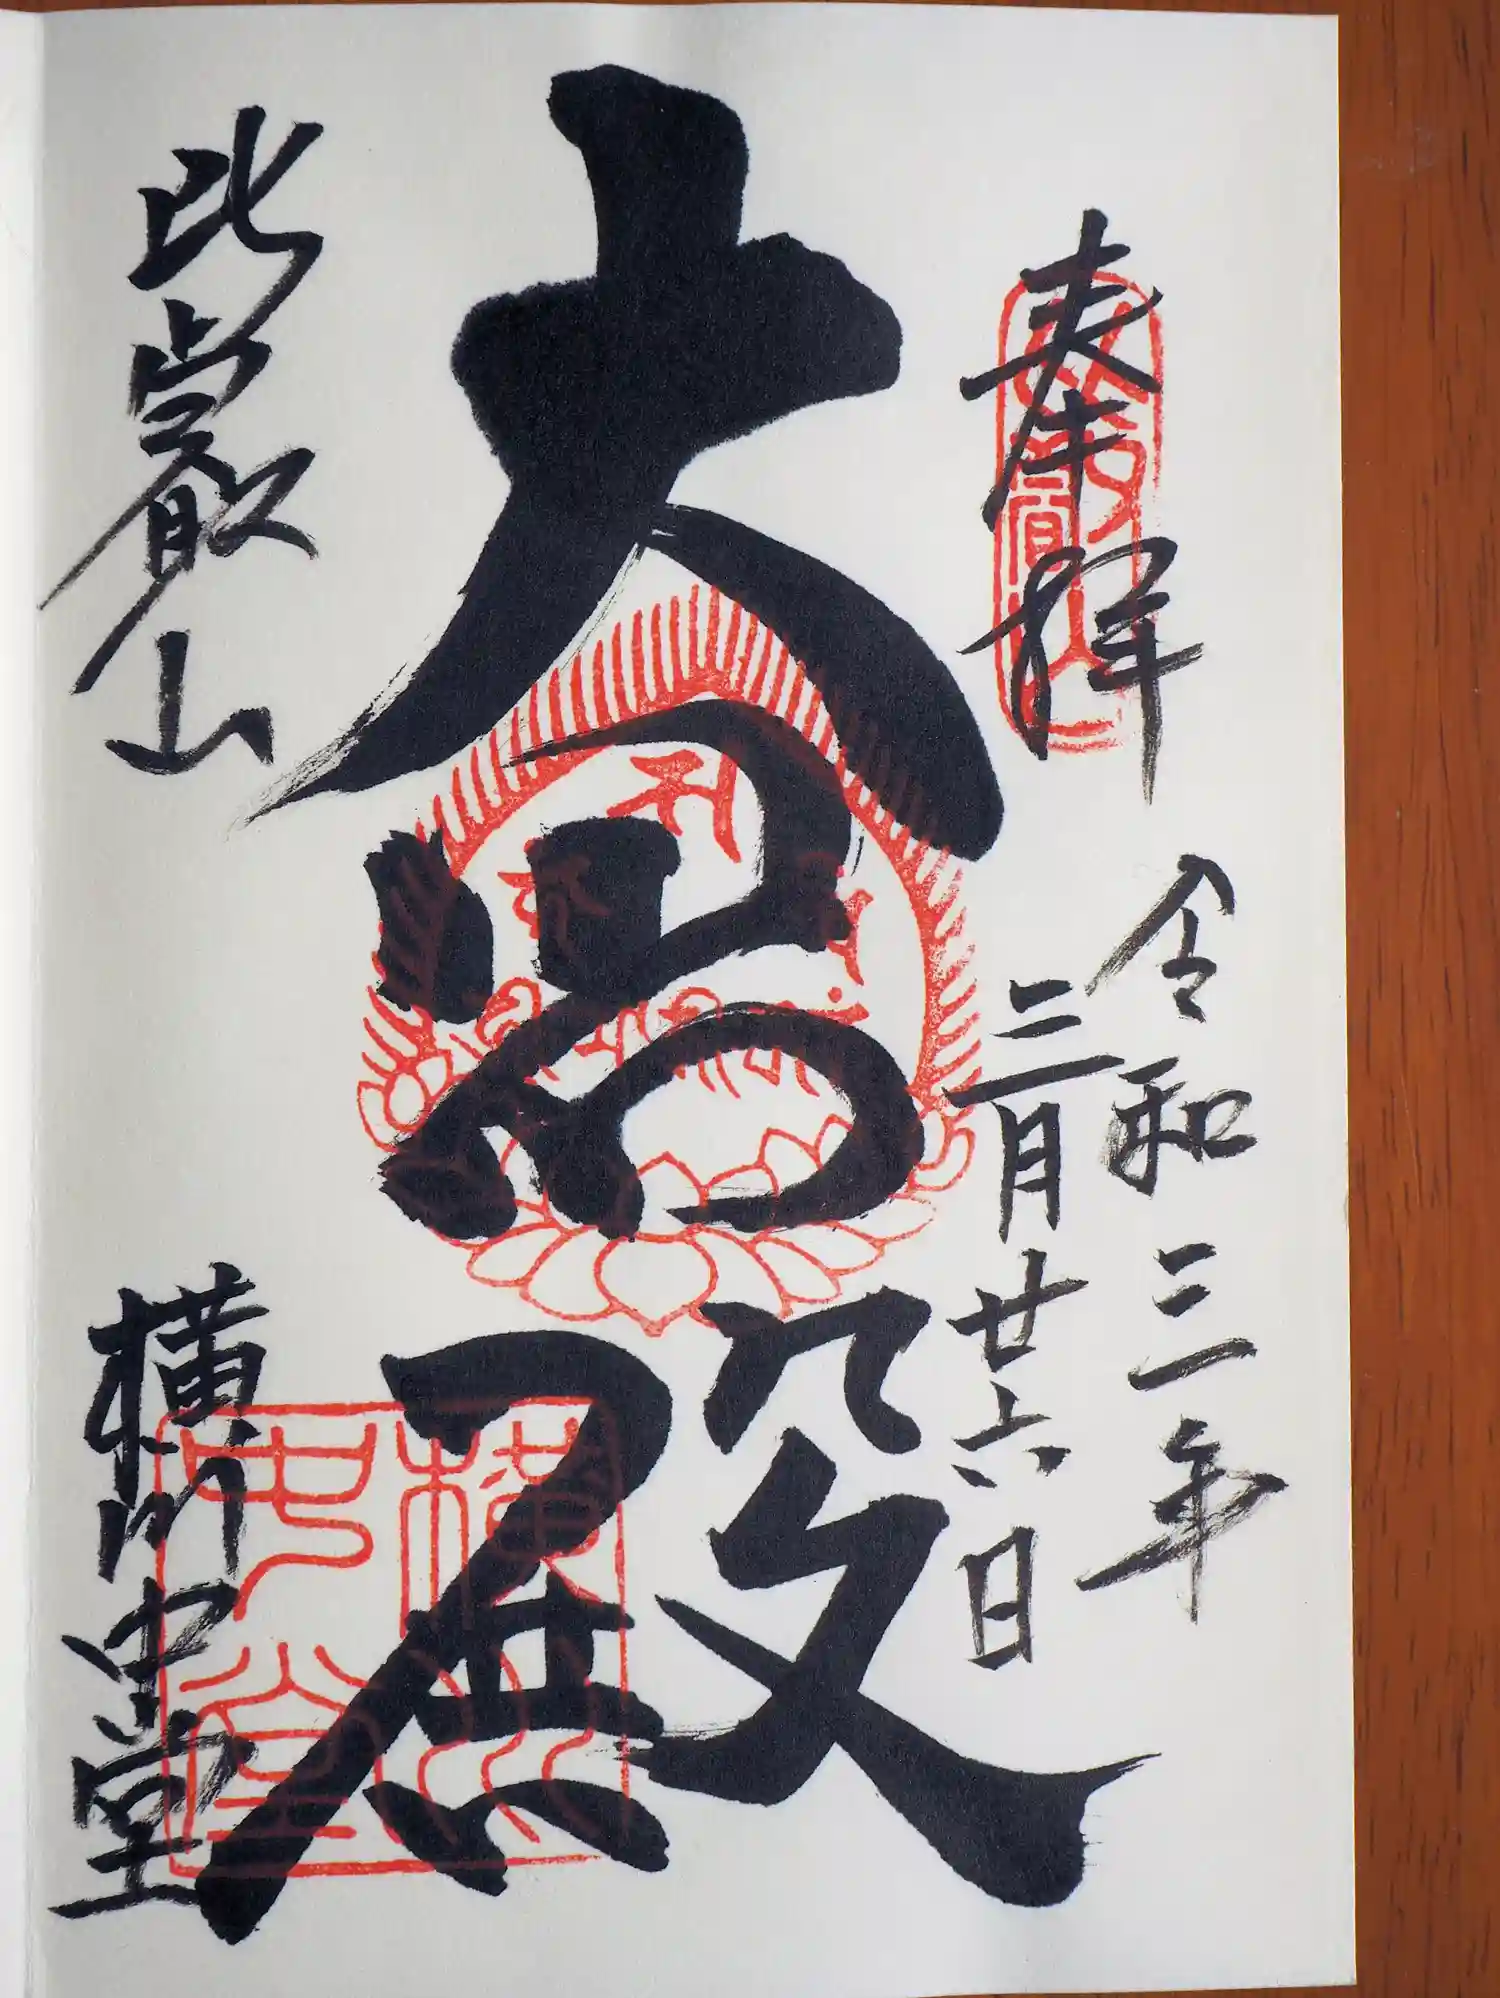 奉拝
令和三年
三月廿六日
大悲殿
比叡山
横川中堂
横川中堂